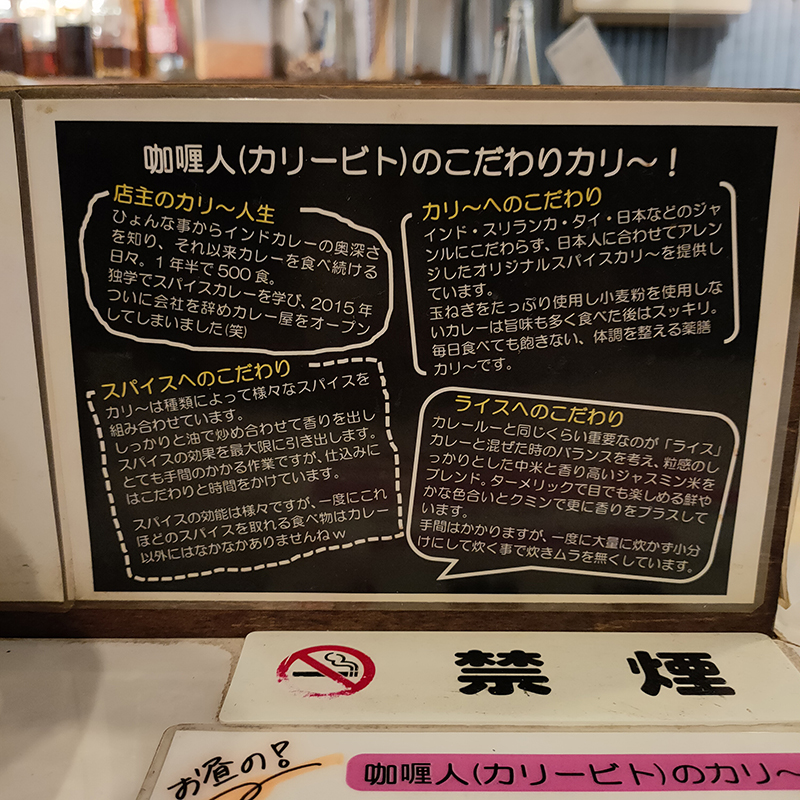 咖喱人(カリービト)のこだわりカリ〜！
店主のカリ〜人生
ひょんな事からインドカレーの奥深さ
を知り、それ以来カレーを食べ続ける
日々。1年半で500食。
独学でスパイスカレーを学び、2015年
ついに会社を辞めカレー屋をオープン
してしまいました(笑)
カリ〜へのこだわり
インド・スリランカ・タイ・日本などのジャ
ンルにこだわらず、日本人に合わせてアレン
ジしたオリジナルスパイスカリ〜を提供し
ています。
玉ねぎをたっぷり使用し小麦粉を使用しな
いカレーは旨味も多く食べた後はスッキリ。
毎日食べても飽きない、体調を整える薬膳
カリ〜です。
スパイスへのこだわり
カリ〜は種類によって様々なスパイスを
組み合わせています。
しっかりと油で炒め合わせて香りを出し
スパイスの効果を最大限に引き出します。
とても手間のかかる作業ですが、仕込みに
はこだわりと時間をかけています。
スパイスの効能は様々ですが、一度にこれ
ほどのスパイスを取れる食べ物はカレー
以外にはなかなかありませんねw
ライスへのこだわり
カレールーと同じくらい重要なのが「ライス」
カレーと混ぜた時のバランスを考え、粒感のし
っかりとした中米と香り高いジャスミン米を
ブレンド。ターメリックで目でも楽しめる鮮や
かな色合いとクミンで更に香りをプラスして
います。
手間はかかりますが、一度に大量に炊かず小分
けにして炊く事で炊きムラを無くしています。
禁煙
お昼の!
咖喱人(カリービト)のカリ〜